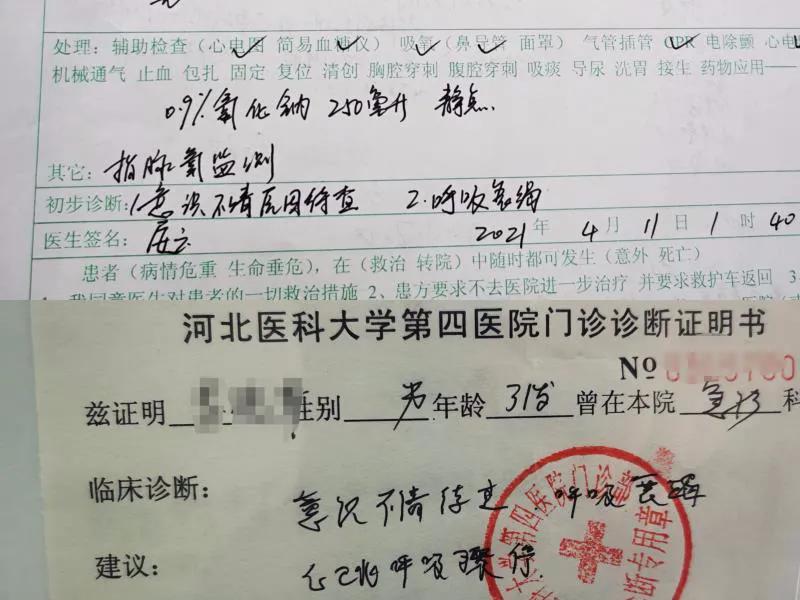 处理：辅助检查（心电图 简易血糖仪） 吸氧（鼻导管 面罩） 气管插管 CPR 电除颤 心电
机械通气 止血 包扎 固定 复位 清创 胸腔穿刺 腹腔穿刺 吸痰 导尿 洗胃 接生 药物应用——
0.9%氯化钠 250毫升 静点
其它：指脉氧监测
初步诊断：1.意识不清原因待查 2.呼吸衰竭
医生签名： 2021年4月11日1时40
患者（病情危重 生命垂危），在（救治 转院）中随时都可发生（意外 死亡）
我同意医生对患者的一切救治措施 2、患方要求不去医院进一步治疗 并要求救护车返回 3
河北医科大学第四医院门诊诊断证明书
No
兹证明 性别 男 年龄 31岁 曾在本院 急诊 科
临床诊断： 意识不清待查 呼吸衰竭
建议： 心跳呼吸骤停
第四医院门诊 断专用章